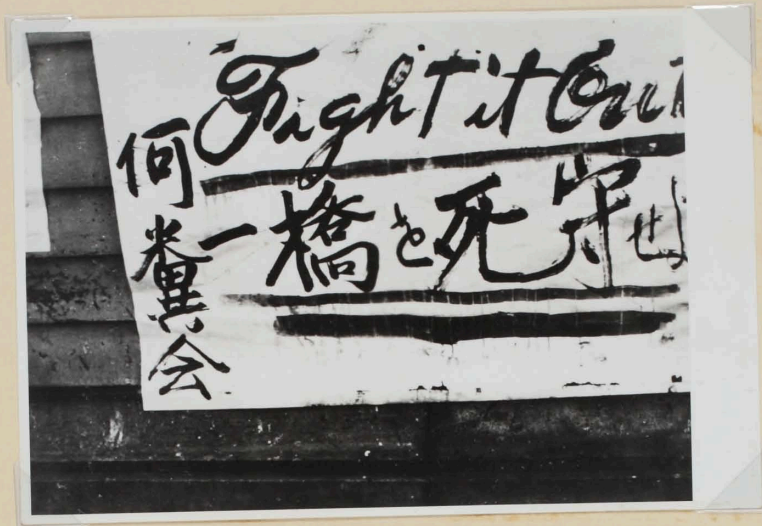 Fight it Out
一橋を死守せよ
何糞会